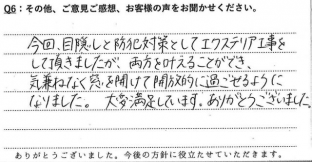 Q6：その他、ご意見ご感想、お客様の声をお聞かせください。
今回、目隠しと防犯対策としてエクステリア工事を
して頂きましたが、両方を叶えることができ、
気兼ねなく窓を開けて開放的に過ごせるように
なりました。大変満足しています。ありがとうございました。
ありがとうございました。今後の方針に役立たせていただきます。